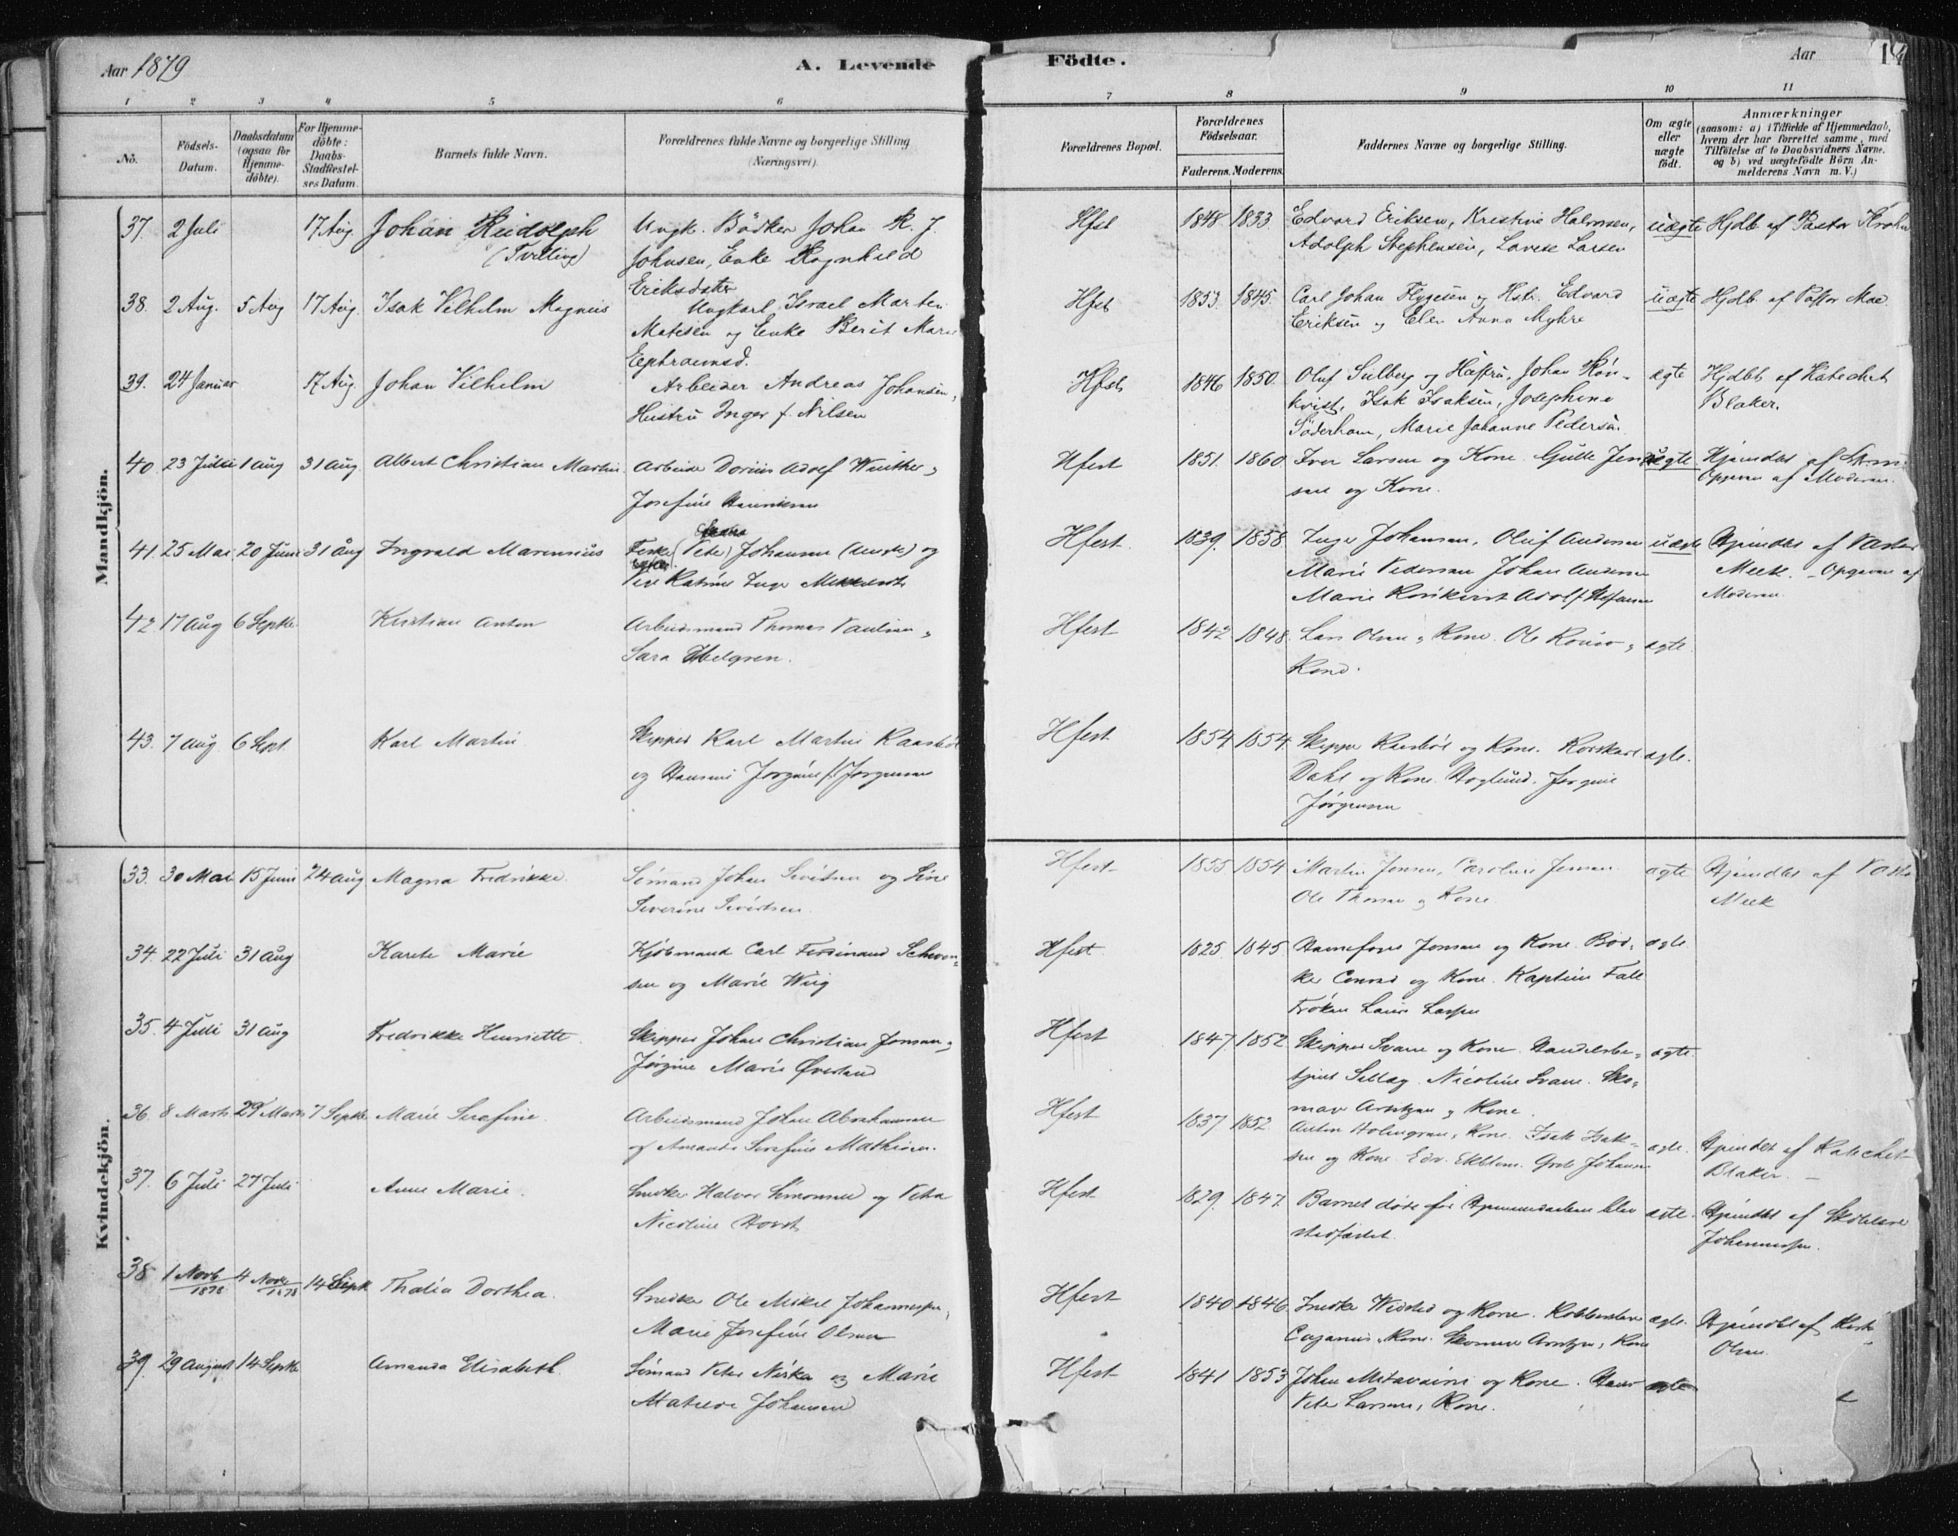 Aar 1879
A. Levende
Födte.
Aar
14
1 2 3 4 5 6 7 8 9 10 11
No.
Födsels-
Datum.
Daabsdatum
(ogsaa for
Hjemme-
döbte).
For Hjemme-
döbte:
Daabs-
Stadfæstel-
ses Datum.
Barnets fulde Navn.
Forældrenes fulde Navne og borgerlige Stilling
(Næringsvei).
Forældrenes Bopæl.
Forældrenes
Födselsaar.
Faderens. Moderens.
Faddernes Navne og borgerlige Stilling.
Om ægte
eller
uægte
födt.
Anmærkninger
(saasom: a) i Tilfælde af Hjemmedaab,
hvem der har forrettet samme, med
Tilföielse af to Daabsvidners Navne,
og b) ved uægtefödte Börn An-
melderens Navn m. V.)
Mandkjön.
37. 2 Juli 17 Aug. Johan Rudolph Ungk. Bödker Johan R. J. Hfst 1848 1833 Edvard Eriksen, Kristine Halvorsen, uægte Hjdb af Pastor Krohn
(Tvilling) Johnsen, Enke Ragnhild Adolph Stephensen, Lovise Larsen
Eriksdatter
38. 2 Aug. 5 Aug 17 Aug. Isak Vilhelm Magnus Ungkarl Israel Marten Hfst 1853. 1845. Carl Johan Flygesen og Hstr. Edvard uægte Hjdb. af Pastor
Matisen og Enke Berit Marie Eriksen og Elen Anna Myhre
Ephraimsd.
39. 24 Januar 17 Aug. Johan Vilhelm Arbeider Andreas Johansen, Hfst 1846 1850. Oluf Sulberg og Hustru, Johan Rön- ægte Hjdbt af Katechet
Hustru Inger f. Nilsen kvist, Isak Isaksen, Josephine Blaker.
Söderholm, Marie Johanne Pedersen
40. 23 Juli 1 Aug 31 Aug. Albert Christian Martin Arbeider Dorius Adolf Winther, Hfest 1851. 1860 Iver Larsen og Kone. Jen- uægte Hjemdbt af
Josefine Henriksen sen og Kone. Opgivn af Moderen.
41. 25 Mai 20 Juni 31 Aug Ingvald Marensius Fisker (Peter) Johansen og Hfest. 1839. 1858. Inger Johansen, Oluf Andersen uægte Hjemdbt af Pastor
Katrine Inge Marie Pedersen Johan Andersen Meek. - Opgivn af
Marie Rönkvist Adolf Stefansen Moderen
42 17 Aug 6 Septbr Kristian Anton Arbeidsmand Thomas Paulsen, Hfest 1842 1848. Lars Olsen, Kone. Ole ægte.
Sara Helgren. Kone.
43. 7 Aug 6 Sept. Karl Martin Skipper Karl Martin Hfest 1854 1854. Skipper og Kone. ægte.
og Hansine Jörgine f. Jörgensen Dahl og Kone. Hoglund. Jörgine
Jörgensen
Kvindekjön.
33. 30 Mai 15 Juni 24 Aug Magna Fredrikke. Sömand Johan Sivertsen og Hfest 1855 1854 Martin Jensen, Caroline Jensen. ægte Hjemdbt af Pastor
Severine Sivertsen. Ole Thomsen og Kone. Meek
34. 22 Juli 31 Aug Karete Marie Kjöbmand Carl Ferdinand Hfest 1825 1845 Havnefoged Jensen og Kone. Böd- ægte
og Marie Wiig ker Conrad og Kone. Kaptein Falk
Fröken Laura Larsen
35. 4 Juli 31 Aug Fredrikke Henriette. Skipper Johan Christian Jensen, Hfest 1847. 1852. Skipper Svane og Kone. Handelsbe- ægte
Jörgine Marie Överland tjent Nicoline Svane. Sko-
mager Arntzen og Kone.
36. 8 Marts 29 Marts 7 Septbr Marie Serafine Arbeidsmand Johan Abrahamsen Hfest 1837 1852. Anton Holmgren, Kone. Isak Isak- ægte. Hjemdbt af Katechet
og Amanda Serafine Mathisen. sen og Kone. Edv. Ekblom. Grete Johansen Blaker.
37. 6 Juli 27 Juli Anne Marie. Snedker Halvor Simonsen og Petra Hfest 1829. 1847. Barnet döde för Hjemmedaaben blev ægte. Hjemdbt af Skolelærer
Nicoline stadfæstet. Johannessen.
38 1 Novb 1878 4 Novbr 1878 14 Septb Thalia Dorthea. Snedker Ole Mikal Johannessen, Hfest 1840 1846 Snedker og Kone. ægte. Hjemdbt af
Marie Josefine Olsen Kone. Skomager Arntzen, Kone Olsen.
39. 29 August 14 Septbr Amanda Elisabeth. Sömand Peter og Marie Hfest 1841 1853 Johan og Kone. ægte
Matilde Johansen Peter Larsen, Kone.